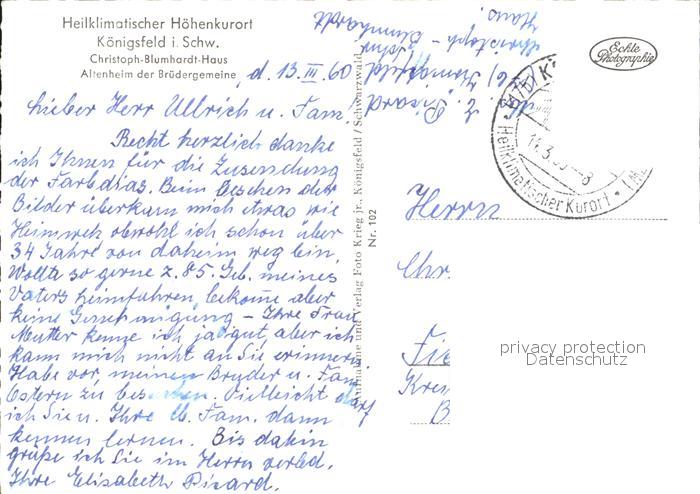 Heilklimatischer Höhenkurort
Königsfeld i. Schw.
Christoph-Blumhardt-Haus
Altenheim der Brüdergemeine
d. 13. III. 60
Lieber Herr Ullrich u. Fam.
Recht herzlich danke
ich Ihnen für die Zusendung
der Farbdias. Beim Besehen der
Bilder überkam mich etwas wie
Heimweh obwohl ich schon über
34 Jahre von daheim weg bin.
Wollte so gerne z. 85. Geb. meines
Vaters heimfahren, bekomme aber
keine Genehmigung – Ihre Frau
Mutter kenne ich ja gut, aber ich
kann mich nicht an Sie erinnern
Habe vor, meinen Bruder u. Fam.
Ostern zu besuchen. Vielleicht darf
ich Sie u. Ihre lb. Fam. dann
kennen lernen. Bis dahin
grüße ich Sie im Herrn verbd.
Ihre Elisabeth Pisard.
E. Pisard
Königsfeld
Christoph - Blumhardt
Haus.
Aufnahme und Verlag Foto Krieg jr., Königsfeld / Schwarzwald
Nr. 102
Echte
Photographie
Heilklimatischer Kurort
Herrn
Chr.
Fie
Kre
B
privacy protection
Datenschutz